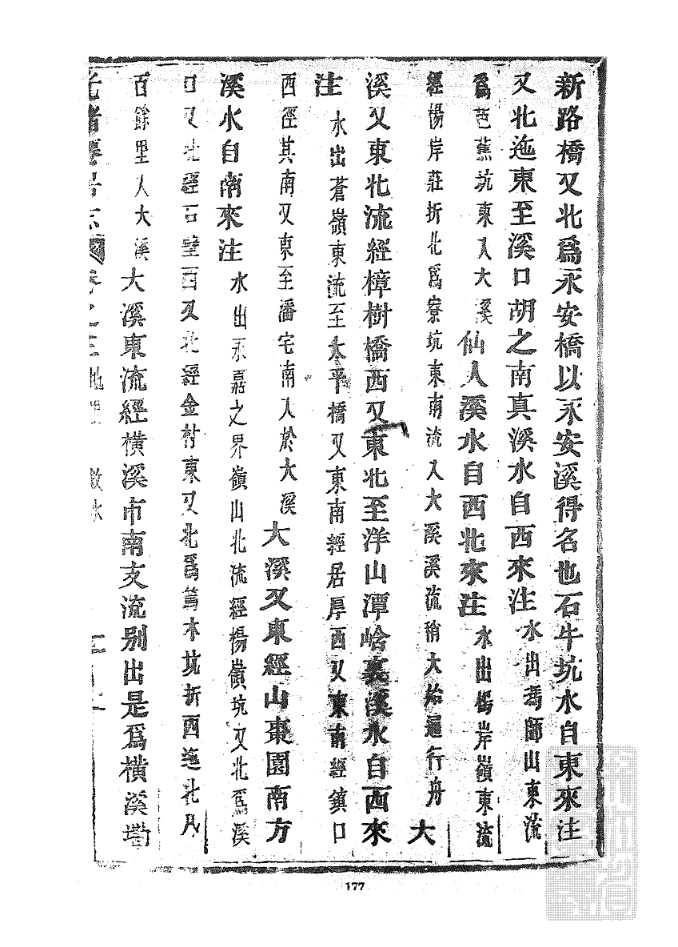 新路橋又北爲永安橋以永安溪得名也石牛坑水自東來注
又北迤東至溪口胡之南真溪水自西來注水出馮師山東流
爲芭蕉坑東入大溪仙人溪水自西北來注水出楊岸嶺東流
經楊岸莊折北爲寮坑東南流入大溪溪流稍大始通行舟大
溪又東北流經樟樹橋西又東北至洋山潭峆裏溪水自西來
注水出蒼嶺東流至太平橋又東南經居厚西又東南經鎮口
西徑其南又東至潘宅南入於大溪大溪又東經山棗園南方
溪水自南來注水出永嘉之界嶺山北流經楊嶺坑又北爲溪
口又北經石壁西又北經金村東又北爲篛木坑折西迤北凡
百餘里入大溪大溪東流經橫溪市南支流別出是爲橫溪墈
光緒仙居志卷之三地理 敘水
177